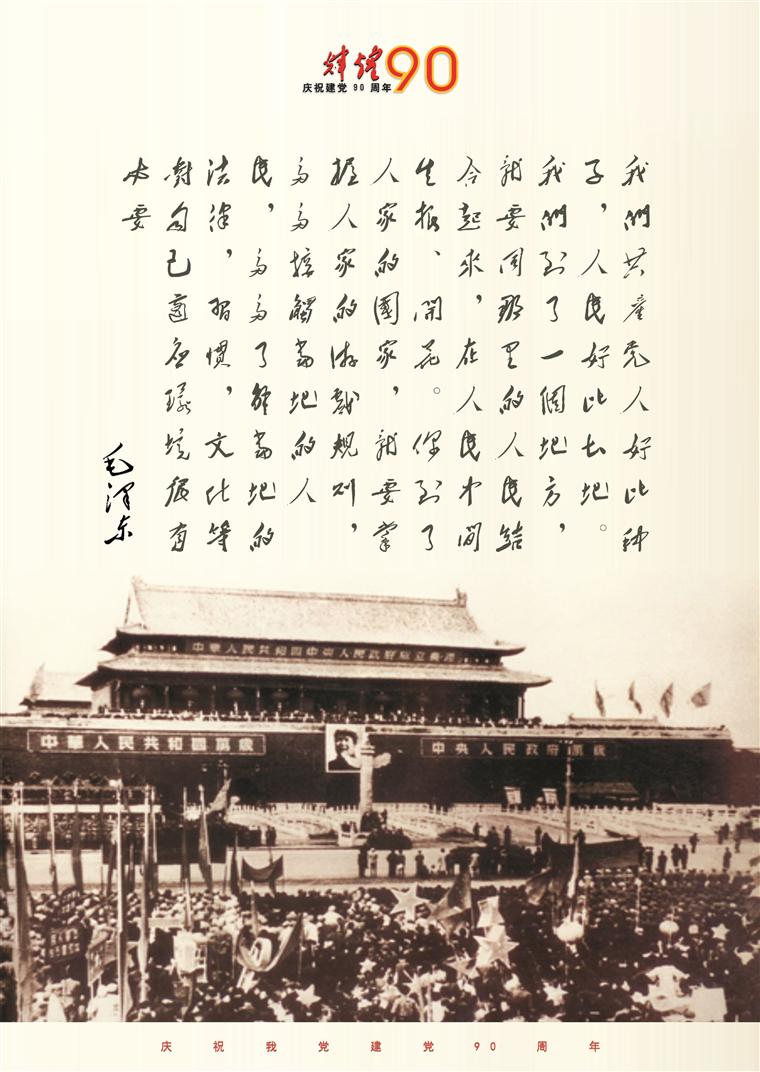 辉煌90
庆祝建党 90 周年
我們共產党人好比种
子，人民好比土地。
我們到了一個地方，
就要同那里的人民結
合起來，在人民中間
生根、開花。你到了
人家的國家，就要掌
握人家的游戲規则，
多多接觸當地的人
民，多多了解當地的
法律，習惯，文化等
對自己適应環境很有
必要
毛泽东
中華人民共和國中央人民政府成立典禮
中華人民共和國萬歲
中央人民政府萬歲
庆祝我党建党90周年